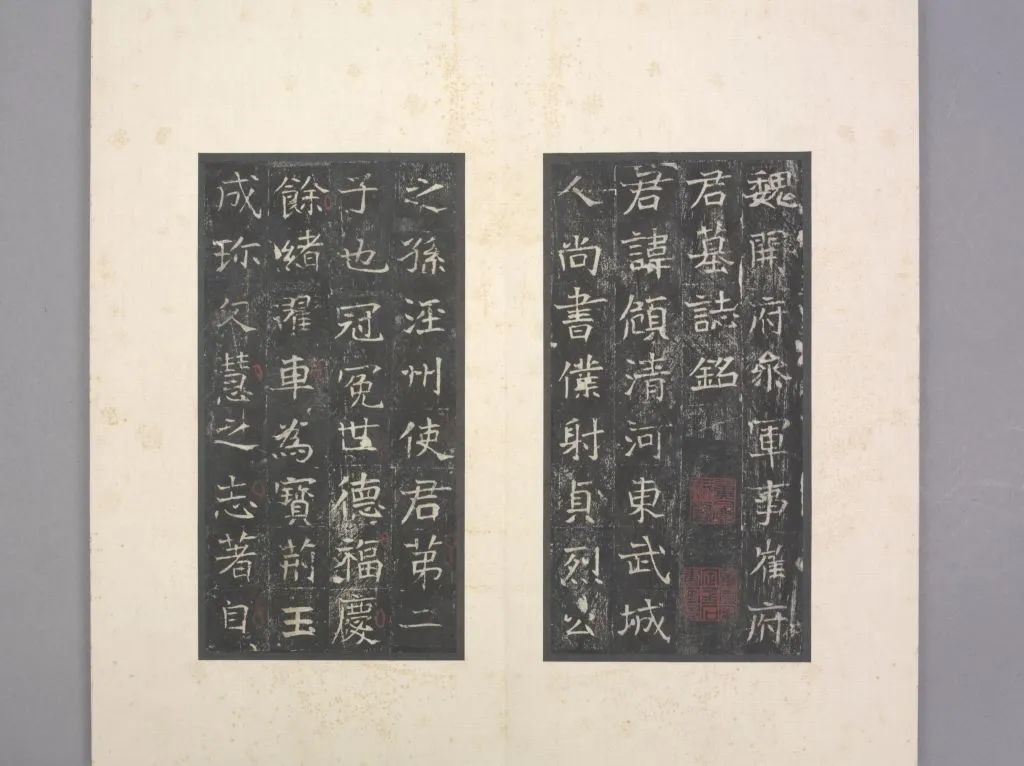 魏開府參軍事崔府
君墓誌銘
君諱頠清河東武城
人尚書僕射貞烈公
之孫涇州使君第二
子也冠冕世德福慶
餘緒濯車為寶荊玉
成珎欠慧之志著自